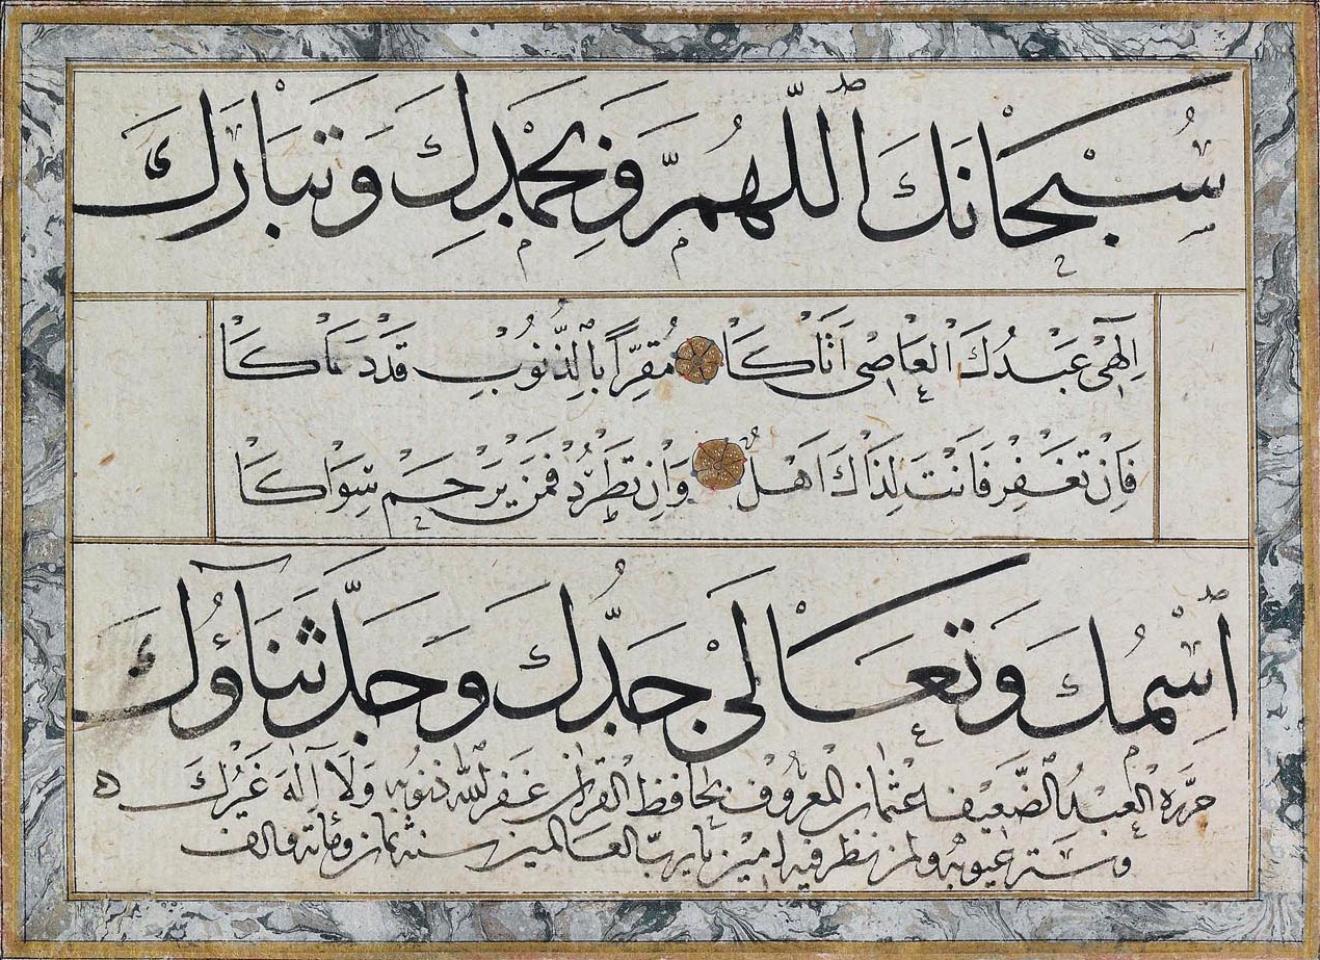 سُبْحَانَكَ اللّٰهُمَّ وَبِحَمْدِكَ وَتَبَارَكَ
اِلٰهِى عَبْدُكَ الْعَاصِى اَتَاكَا مُقِرًّا بِالذُّنُوبِ قَدْ دَعَاكَا
فَاِنْ تَغْفِرْ فَاَنْتَ لِذَاكَ اَهْلٌ وَاِنْ تَطْرُدْ فَمَنْ يَرْحَمْ سِوَاكَا
اسْمُكَ وَتَعَالَىٰ جَدُّكَ وَجَلَّ ثَنَاؤُكَ
حرره العبد الضعيف عثمان المعروف بحافظ القرآن غفر الله ذنوبه وَلَا اِلٰهَ غَيْرُكَ
وستر عيوبه ولمن نظر فيه آمين يا رب العالمين سنة ثمان ومائة والف